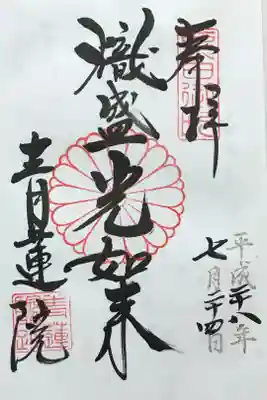 奉拝
平成廿八年
七月二十四日
熾盛光如来
青蓮院